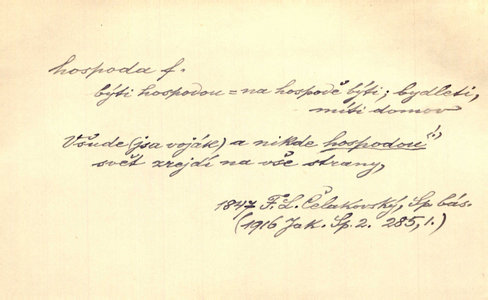 hospoda f.
býti hospodou = na hospodě býti; bydleti,
míti domov
Všude (jsa voják) a nikde hospodou
svět zrejdí na vše strany,
1847 F. L. Čelakovský, Sp. bás.
(1916 Jak. Sp. 2. 285, 1.)